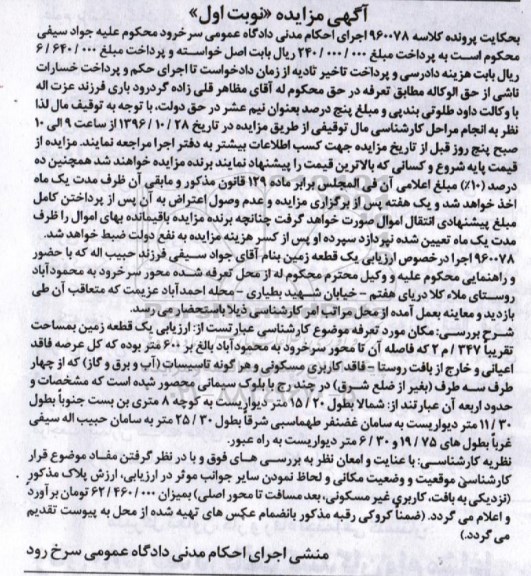 آگهی مزایده «نوبت اول»
بحکایت پرونده کلاسه ۹۶۰۰۷۸ اجرای احکام مدنی دادگاه عمومی سرخرود محکوم علیه جواد سیفی
محکوم است به پرداخت مبلغ ۲۴۰/۰۰۰/۰۰۰ ریال بابت اصل خواسته و پرداخت مبلغ ۶/۶۴۰/۰۰۰
ریال بابت هزینه دادرسی و پرداخت تاخیر تادیه از زمان دادخواست تا اجرای حکم و پرداخت خسارات
ناشی از حق الوکاله مطابق تعرفه در حق محکوم له آقای مظاهر قلی زاده گردرود باری فرزند عزت اله
با وکالت داود طلوتی بندپی و مبلغ پنج درصد بعنوان نیم عشر در حق دولت، با توجه به توقیف مال لذا
نظر به انجام مراحل کارشناسی مال توقیفی از طریق مزایده در تاریخ ۱۳۹۶/۱۰/۲۸ از ساعت ۹ الی ۱۰
صبح پنج روز قبل از تاریخ مزایده جهت کسب اطلاعات بیشتر به دفتر اجرا مراجعه نمایند. مزایده از
قیمت پایه شروع و کسانی که بالاترین قیمت را پیشنهاد نمایند برنده مزایده خواهند شد همچنین ده
درصد (۱۰٪) مبلغ اعلامی آن فی المجلس برابر ماده ۱۲۹ قانون مذکور و مابقی آن ظرف مدت یک ماه
اخذ خواهد شد و یک هفته پس از برگزاری مزایده و عدم وصول اعتراض به آن پس از پرداختن کامل
مبلغ پیشنهادی انتقال اموال صورت خواهد گرفت چنانچه برنده مزایده باقیمانده بهای اموال را ظرف
مدت یک ماه تعیین شده نپردازد سپرده او پس از کسر هزینه مزایده به نفع دولت ضبط خواهد شد.
۹۶۰۰۷۸ اجرا درخصوص ارزیابی یک قطعه زمین بنام آقای جواد سیفی فرزند حبیب اله که با حضور
و راهنمایی محکوم علیه و وکیل محترم محکوم له از محل تعرفه شده محور سرخرود به محمودآباد
روستای ملاء کلا دریای هفتم - خیابان شهید بطیاری - محله احمدآباد عزیمت که متعاقب آن طی
بازدید و معاینه بعمل آمده از محل مراتب امر کارشناسی ذیلا باستحضار می رسد.
شرح بررسی: مکان مورد تعرفه موضوع کارشناسی عبارتست از: ارزیابی یک قطعه زمین بمساحت
تقریباً ۳۴۷ م ۲ که فاصله آن تا محور سرخرود به محمودآباد بالغ بر ۶۰۰ متر بوده که کل عرصه فاقد
اعیانی و خارج از بافت روستا - فاقد کاربری مسکونی و هرگونه تاسیسات (آب و برق و گاز) که از چهار
طرف سه طرف (بغیر از ضلع شرق) در چند رج با بلوک سیمانی محصور شده است که مشخصات و
حدود اربعه آن عبارتند از: شمالا بطول ۱۵/۲۰ متر دیواریست به کوچه ۸ متری بن بست جنوباً بطول
۱۱/۳۰ متر دیواریست به سامان غضنفر طهماسبی شرقاً بطول ۲۵/۳۰ متر به سامان حبیب اله سیفی
غرباً بطول های ۱۹/۷۵ و ۶/۳۰ متر دیواریست به راه عبور.
نظریه کارشناسی: با عنایت و امعان نظر به بررسی های فوق و با در نظر گرفتن مفاد موضوع قرار
کارشناسی موقعیت و وضعیت مکانی و لحاظ نمودن سایر جوانب موثر در ارزیابی، ارزش پلاک مذکور
(نزدیکی به بافت، کاربری غیر مسکونی، بعد مسافت تا محور اصلی) بمیزان ۶۲/۴۶۰/۰۰۰ تومان برآورد
و اعلام می گردد. (ضمناً کروکی رقبه مذکور بانضمام عکس های تهیه شده از محل به پیوست تقدیم
می گردد.)
منشی اجرای احکام مدنی دادگاه عمومی سرخ رود